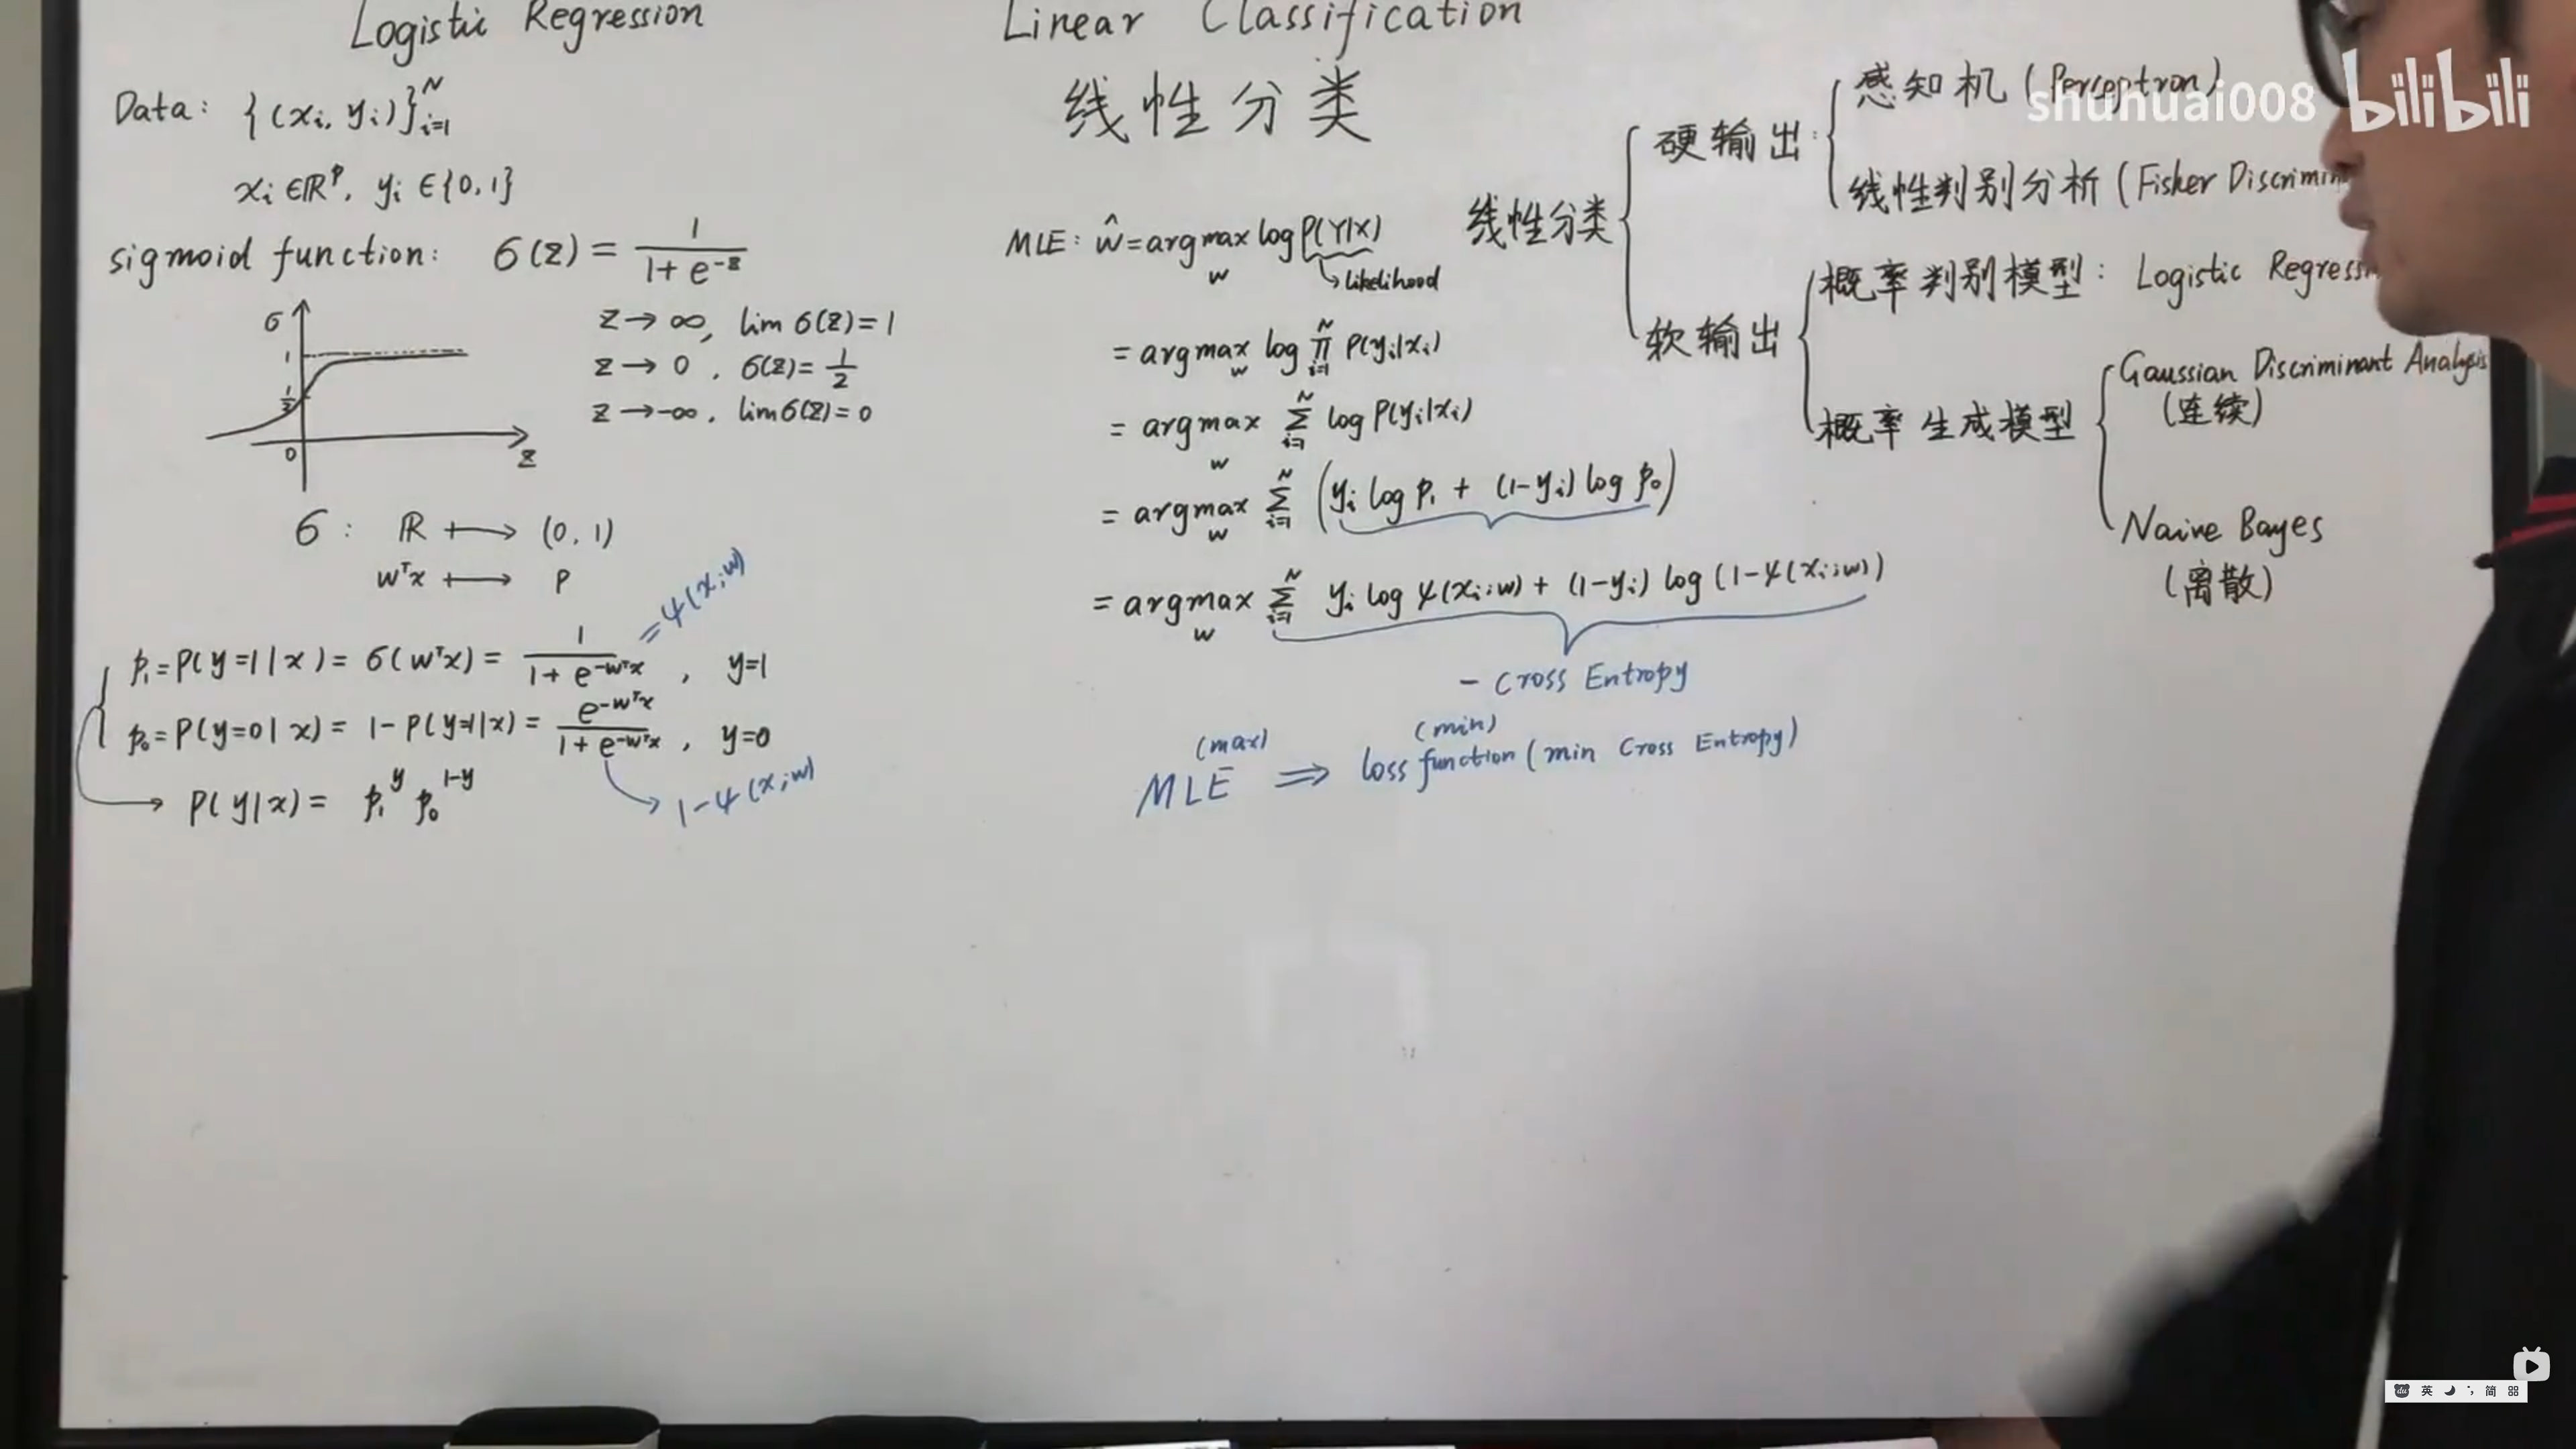 Logistic Regression
Data: {(xᵢ, yᵢ)}ᵢ₌₁ᴺ
xᵢ ∈ ℝᵖ, yᵢ ∈ {0, 1}
sigmoid function: σ(z) = 1 / (1 + e^{-z})
σ
1
1/2
0
z
z → ∞, lim σ(z) = 1
z → 0, σ(z) = 1/2
z → -∞, lim σ(z) = 0
σ : ℝ ⟼ (0, 1)
wᵀx ⟼ p
p₁ = P(y=1|x) = σ(wᵀx) = 1 / (1 + e^{-wᵀx}), y=1
= ψ(x;w)
p₀ = P(y=0|x) = 1 - P(y=1|x) = e^{-wᵀx} / (1 + e^{-wᵀx}), y=0
1-ψ(x;w)
→ P(y|x) = p₁^y p₀^{1-y}
Linear Classification
线性分类
MLE: ŵ = argmax_w log P(Y|X)
↳ likelihood
= argmax_w log ∏ᵢ₌₁ᴺ P(yᵢ|xᵢ)
= argmax_w ∑ᵢ₌₁ᴺ log P(yᵢ|xᵢ)
= argmax_w ∑ᵢ₌₁ᴺ (yᵢ log p₁ + (1-yᵢ) log p₀)
= argmax_w ∑ᵢ₌₁ᴺ yᵢ log ψ(xᵢ;w) + (1-yᵢ) log (1-ψ(xᵢ;w))
- Cross Entropy
(max) (min)
MLE ⇒ loss function (min Cross Entropy)
线性分类
硬输出:
感知机 (Perceptron)
线性判别分析 (Fisher
软输出
概率判别模型: Logistic
概率生成模型
Gaussian Discriminant Analysis
(连续)
Naive Bayes
(离散)
shuhuai008 bilibili
英 简